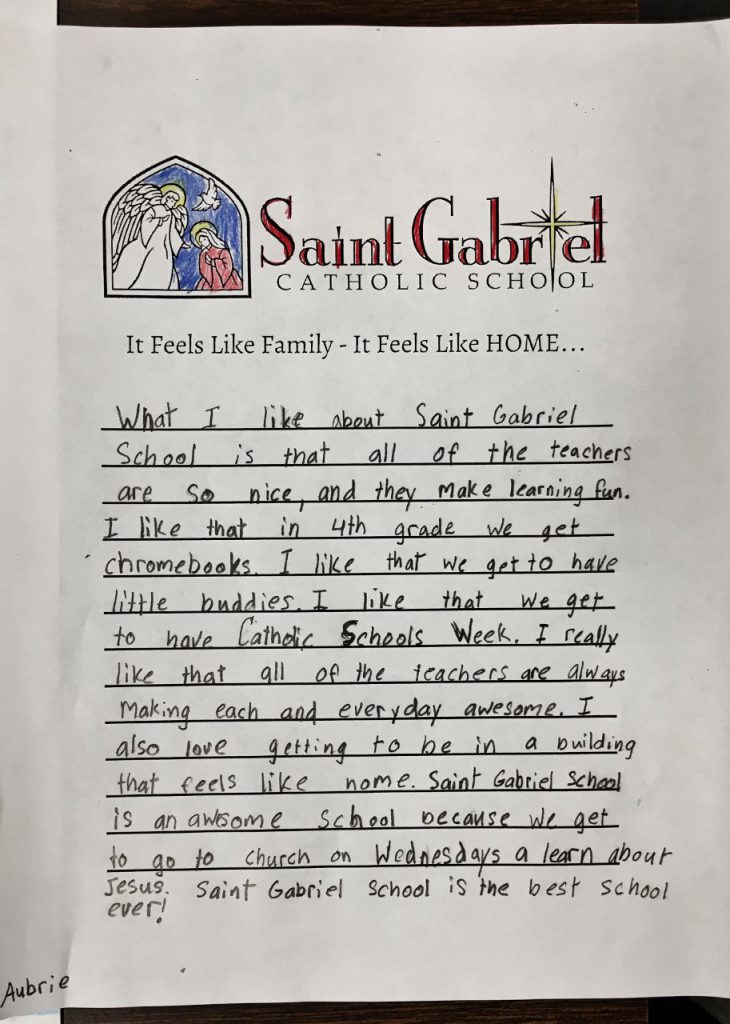 Saint Gabriel
CATHOLIC SCHOOL
It Feels Like Family - It Feels Like HOME...
What I like about Saint Gabriel
School is that all of the teachers
are so nice, and they make learning fun.
I like that in 4th grade we get
chromebooks. I like that we get to have
little buddies. I like that we get
to have Catholic Schools Week. I really
like that all of the teachers are always
making each and everyday awesome. I
also love getting to be in a building
that feels like home. Saint Gabriel School
is an awesome school because we get
to go to church on Wednesdays a learn about
Jesus. Saint Gabriel School is the best school
ever!
Aubrie